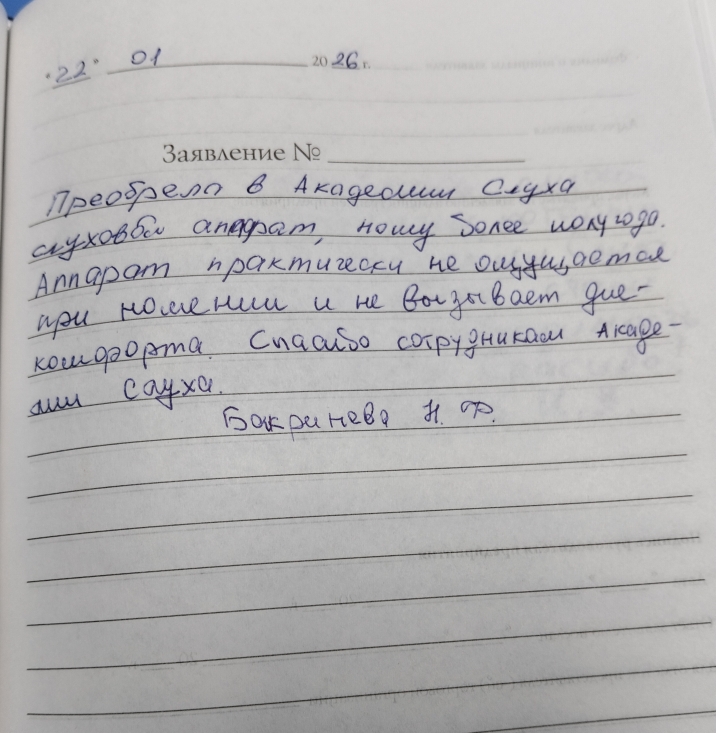 "22" 01 2026 г.
Заявление №
Преобрела в Академии Слуха
слуховой аппарат, ношу более полугода.
Аппарат практически не ощущается
при ношении и не вызывает дис-
комфорта. Спасибо сотрудникам Акаде-
мии Слуха.
Бакринева Н. Ф.